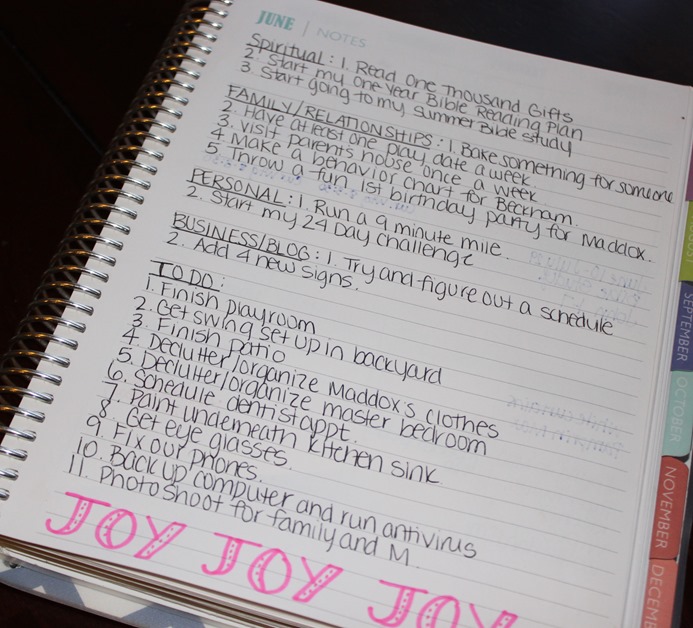 JUNE | NOTES
Spiritual: 1. Read One Thousand Gifts
2. Start my One Year Bible Reading Plan
3. Start going to my summer Bible study
FAMILY/RELATIONSHIPS: 1. Bake something for someone
2. Have at least one play date a week
3. Visit parents house once a week
4. Make a behavior chart for Beckham.
5. Throw a fun 1st birthday party for Maddox.
PERSONAL: 1. Run a 9 minute mile.
2. Start my 24 Day challenge
BUSINESS/BLOG: 1. Try and figure out a schedule
2. Add 4 new signs.
TO DO:
1. Finish playroom
2. Get swing set up in backyard
3. Finish patio
4. Declutter/organize Maddox's clothes
5. Declutter/organize master bedroom
6. Schedule dentist appt.
7. Paint underneath kitchen sink
8. Get eye glasses.
9. Fix our phones.
10. Back up computer and run antivirus
11. Photo shoot for family and M.
JOY JOY JOY
SEPTEMBER
OCTOBER
NOVEMBER
DECEMBE